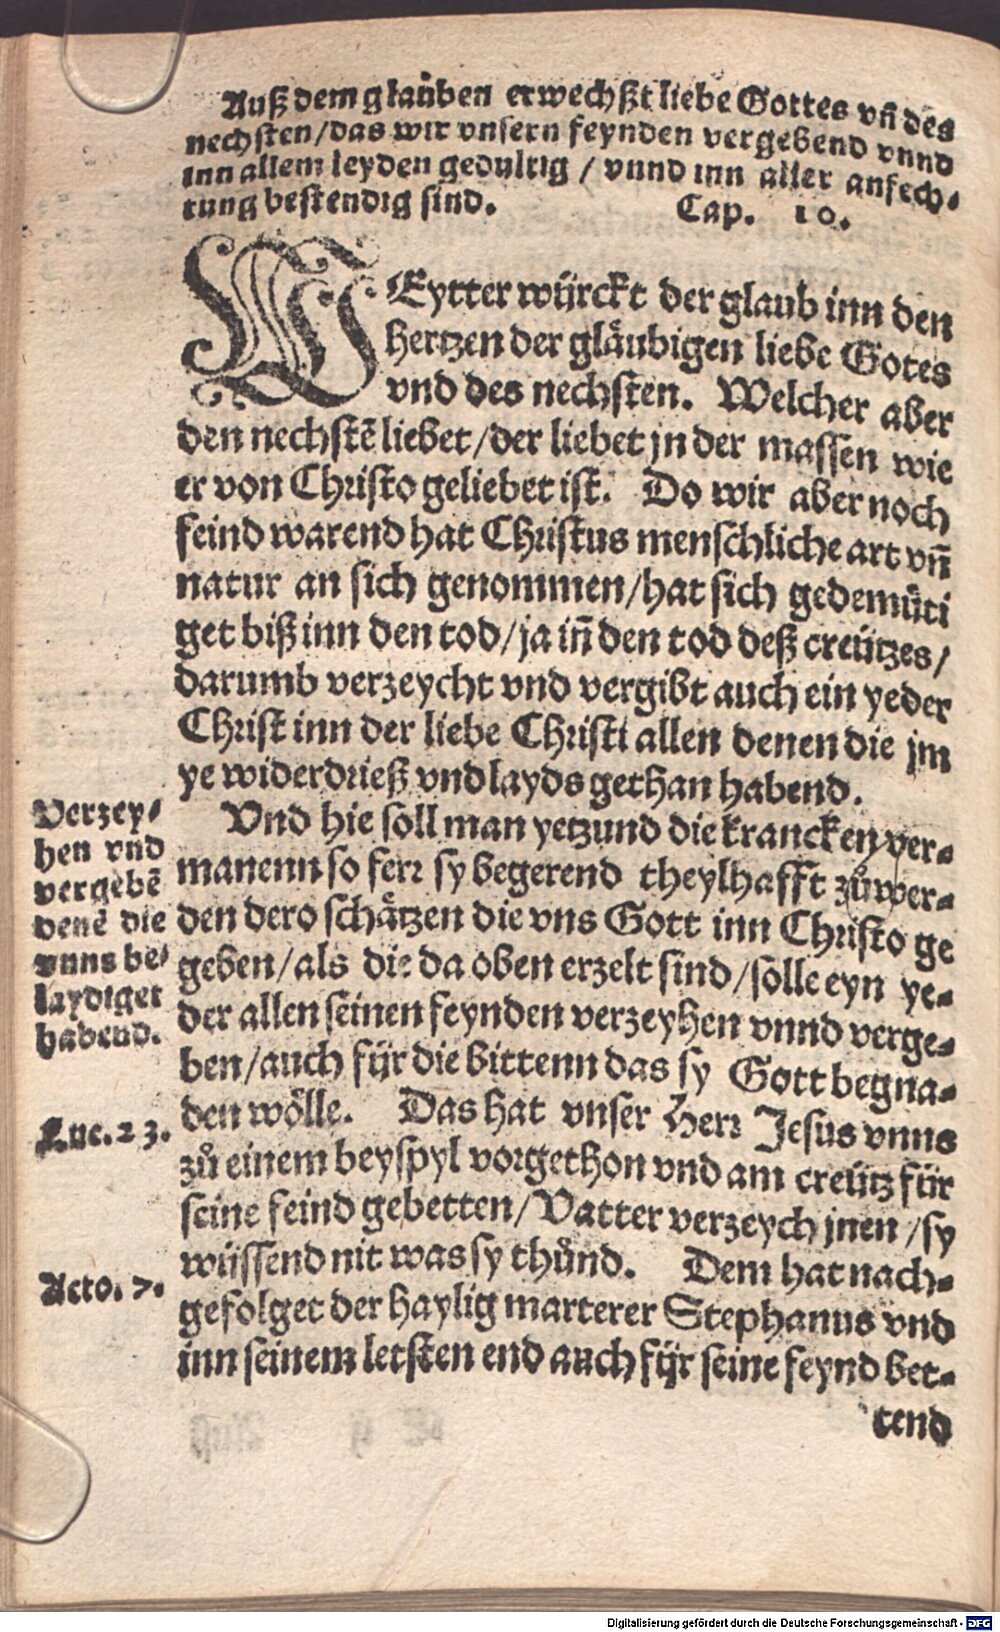 Auß dem glauben erwechßt liebe Gottes vñ des
nechsten/das wir vnsern feynden vergebend vnnd
inn allem leyden gedultig / vnnd inn aller anfech-
tung bestendig sind. Cap. 10.
WEytter würckt der glaub inn den
hertzen der gläubigen liebe Gotes
vnd des nechsten. Welcher aber
den nechstē liebet/der liebet jn der massen wie
er von Christo geliebet ist. Do wir aber noch
feind warend hat Christus menschliche art vñ
natur an sich genommen/hat sich gedemüti
get biß inn den tod/ja iñ den tod deß creützes/
darumb verzeycht vnd vergibt auch ein yeder
Christ inn der liebe Christi allen denen die jm
ye widerdrieß vnd layds gethan habend.
Vnd hie soll man yetzund die krancken ver-
manenn so ferr sy begerend theylhafft zůwer-
den dero schätzen die vns Gott inn Christo ge
geben/als die da oben erzelt sind/solle eyn ye-
der allen seinen feynden verzeyhen vnnd verge-
ben/auch für die bittenn das sy Gott begna-
den wölle. Das hat vnser Herr Jesus vnns
zů einem beyspyl vorgethon vnd am creütz für
seine feind gebetten/Vatter verzeych jnen /sy
wüssend nit was sy thůnd. Dem hat nach-
gefolget der haylig marterer Stephanus vnd
inn seinem letsten end auch für seine feynd bet-
tend
Verzey-
hen vnd
vergebē
denē die
vnns be-
laydiget
habend.
Luc. 23.
Acto. 7.
Digitalisierung gefördert durch die Deutsche Forschungsgemeinschaft - DFG